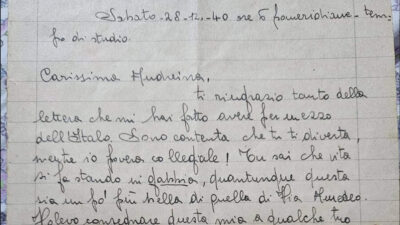 Sabato - 28-12-40 ore 6 pomeridiane - tem-
po di studio.
Carissima Andreina,
ti ringrazio tanto della
lettera che mi hai fatto avere per mezzo
dell'Italo. Sono contenta che tu ti diverta,
mentre io povera collegiale! Tu sai che vita
si fa stando in gabbia, quantunque questa
sia un po' più bella di quella di Via Amedeo.
Volevo consegnare questa mia a qualche tuo